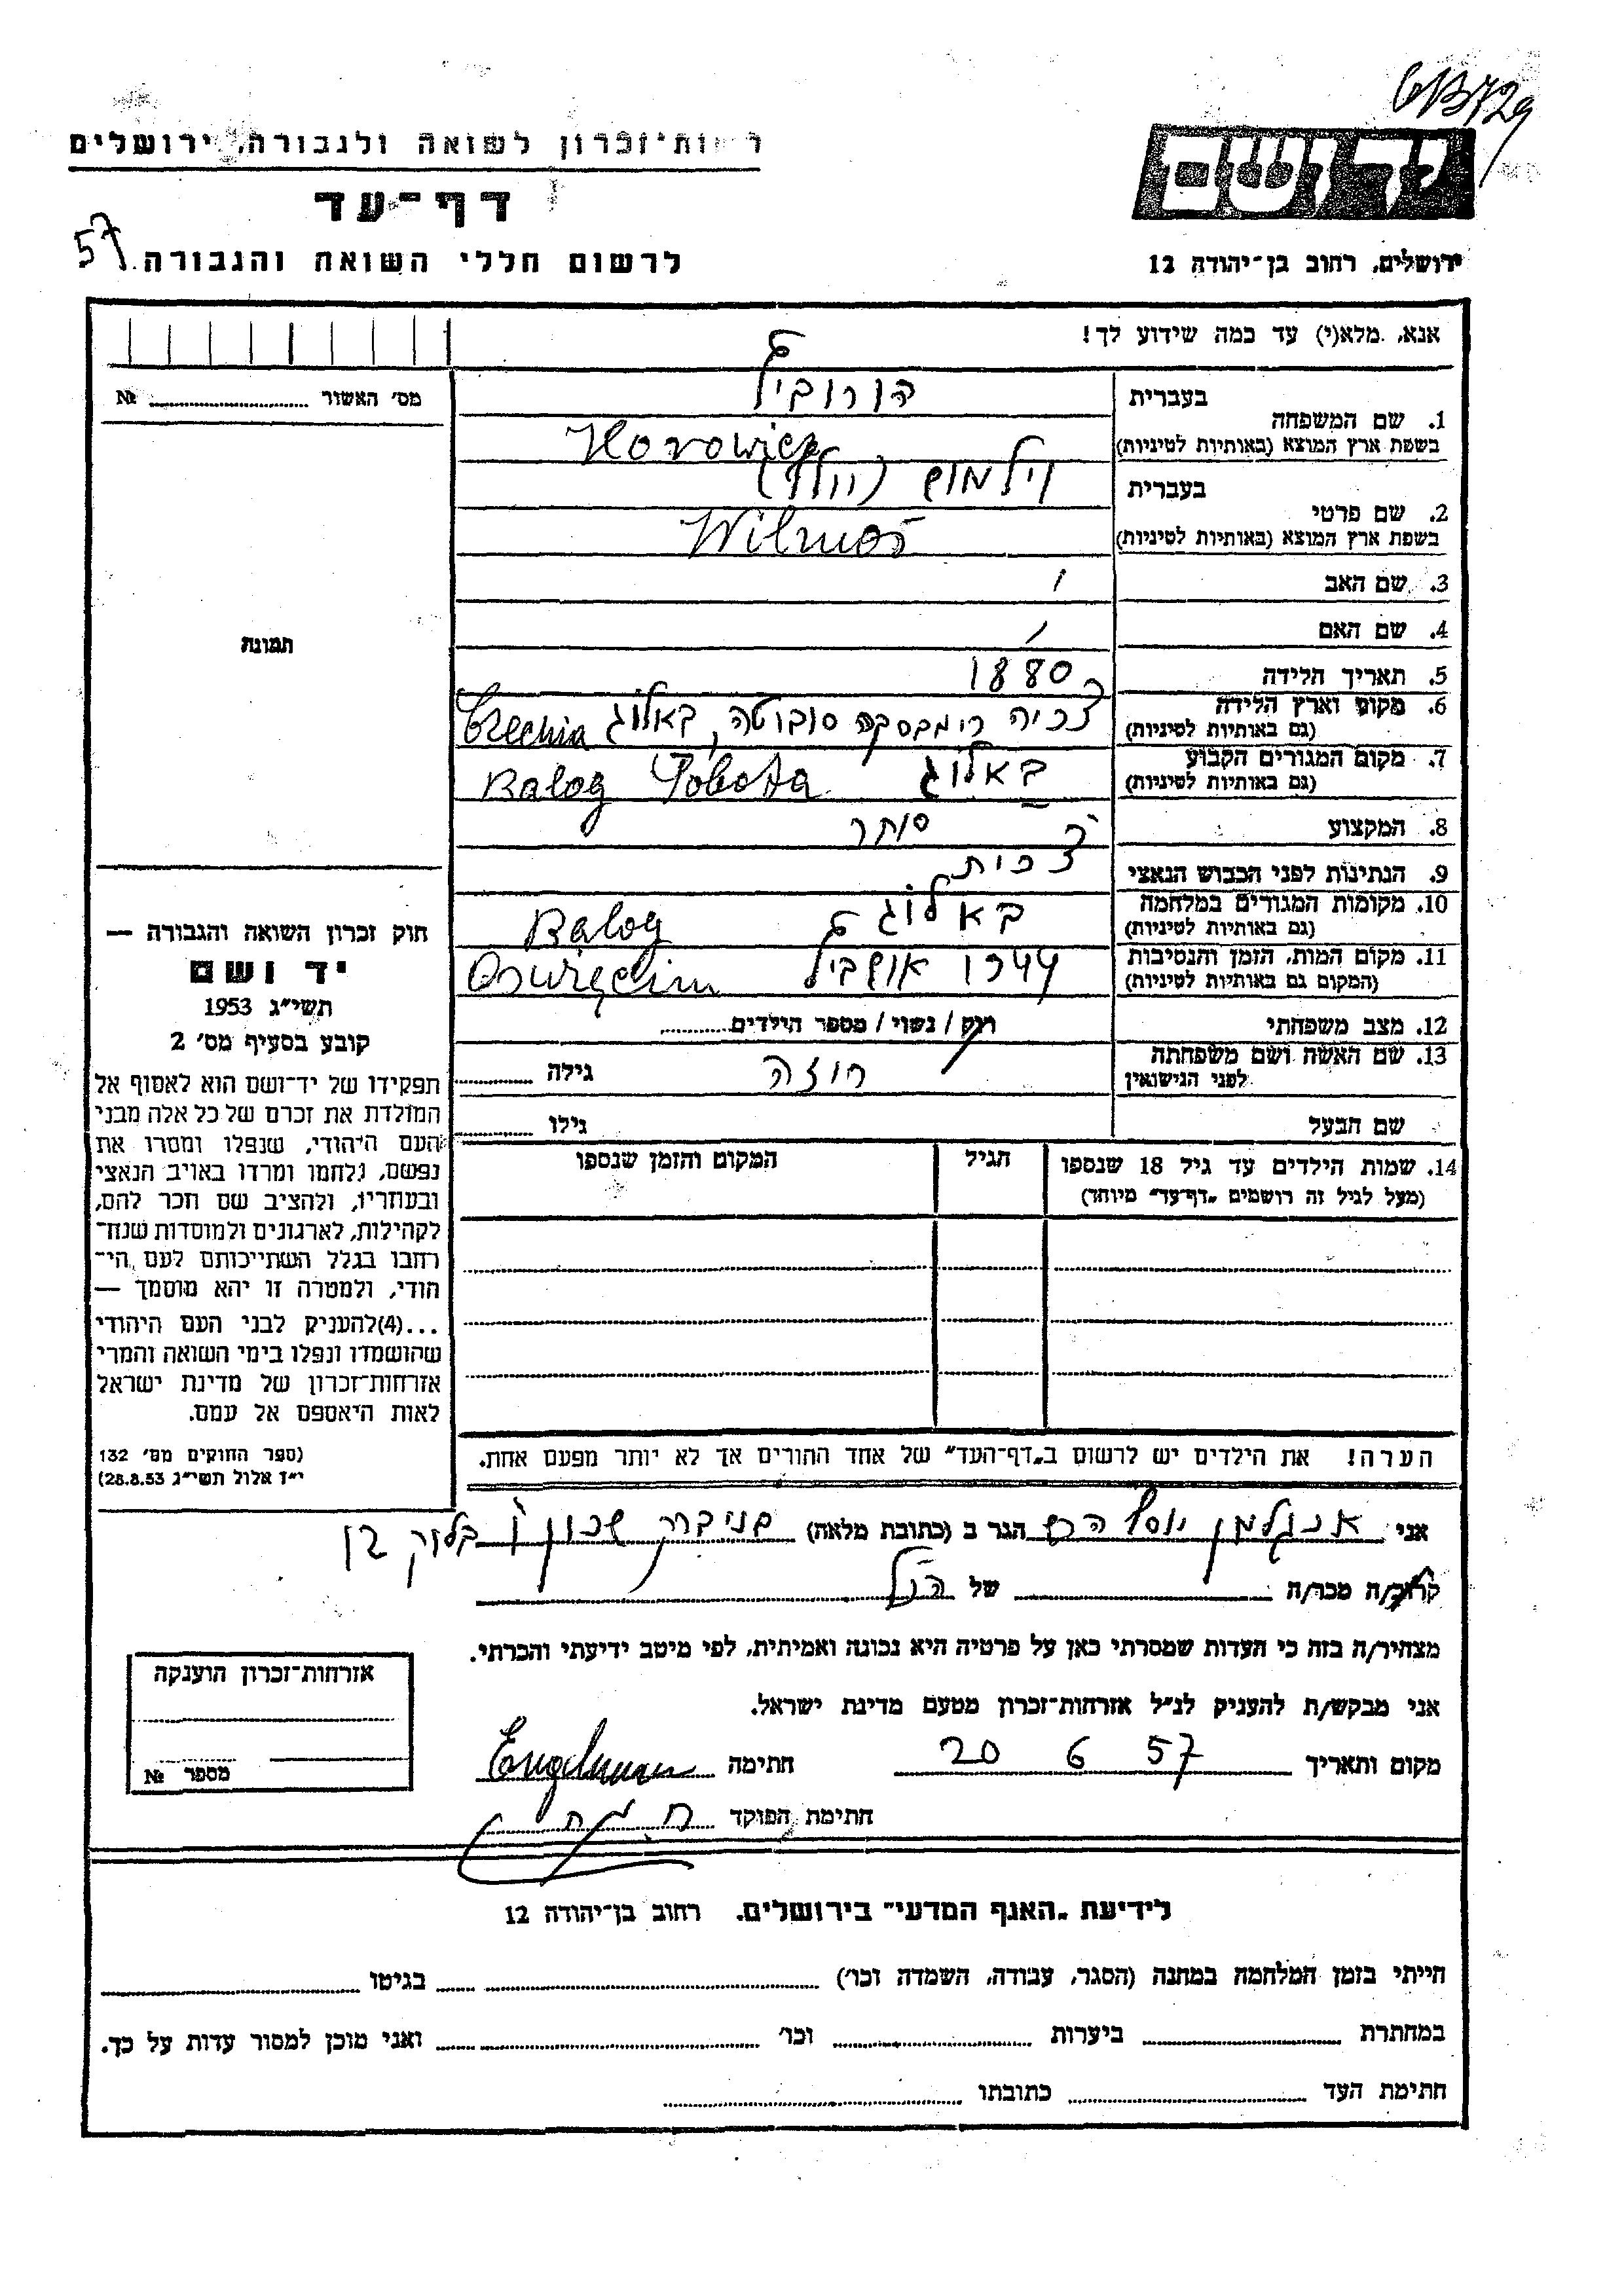 רשות־זכרון לשואה ולגבורה, ירושלים
דף־עד
לרשום חללי השואה והגבורה
57
יד ושם
ירושלים, רחוב בן־יהודה 12
אנא, מלא(י) עד כמה שידוע לך!
מס׳ האשור № 
1. שם המשפחה
בעברית הורוביץ
בשפת ארץ המוצא (באותיות לטיניות) Horowicz
2. שם פרטי
בעברית וילמוש (וולף)
בשפת ארץ המוצא (באותיות לטיניות) Wilmoš
3. שם האב
4. שם האם
5. תאריך הלידה 1880
6. מקום וארץ הלידה (גם באותיות לטיניות) צ׳כיה רימבסקה סובוטה, באלוג Czechia
7. מקום המגורים הקבוע (גם באותיות לטיניות) באלוג Balog Sobota
8. המקצוע סוחר
9. הנתינות לפני הכבוש הנאצי צ׳כית
10. מקומות המגורים במלחמה (גם באותיות לטיניות) באלוג Balog
11. מקום המות, הזמן והנסיבות (המקום גם באותיות לטיניות) 1944 אושביץ Oswięcim
12. מצב משפחתי רוק / נשוי / מספר הילדים
13. שם האשה ושם משפחתה לפני הנישואין רוזה גילה
שם הבעל גילו
14. שמות הילדים עד גיל 18 שנספו (מעל לגיל זה רושמים „דף־עד״ מיוחד)
הגיל
המקום והזמן שנספו
הערה! את הילדים יש לרשום ב„דף־העד״ של אחד ההורים אך לא יותר מפעם אחת.
תמונה
חוק זכרון השואה והגבורה —
יד ושם
תשי״ג 1953
קובע בסעיף מס׳ 2
תפקידו של יד־ושם הוא לאסוף אל
המולדת את זכרם של כל אלה מבני
העם היהודי, שנפלו ומסרו את
נפשם, נלחמו ומרדו באויב הנאצי
ובעוזריו, ולהציב שם וזכר להם,
לקהילות, לארגונים ולמוסדות שנח־
רבו בגלל השתייכותם לעם הי־
הודי, ולמטרה זו יהא מוסמך —
...(4)להעניק לבני העם היהודי
שהושמדו ונפלו בימי השואה והמרי
אזרחות־זכרון של מדינת ישראל
לאות היאספם אל עמם.
(ספר החוקים מס׳ 132
י״ז אלול תשי״ג 28.8.53)
אני אנגלמן יוסף הרש הגר ב (כתובת מלאה) בניברק שכון ו׳ בלוק
קרוב/ה מכר/ה של הנ״ל
מצהיר/ה בזה כי העדות שמסרתי כאן על פרטיה היא נכונה ואמיתית, לפי מיטב ידיעתי והכרתי.
אני מבקש/ת להעניק לנ״ל אזרחות־זכרון מטעם מדינת ישראל.
מקום ותאריך 20 6 57 חתימה Engelman
חתימת הפוקד
אזרחות־זכרון הוענקה
מספר №
לידיעת „האגף המדעי״ בירושלים. רחוב בן־יהודה 12
הייתי בזמן המלחמה במחנה (הסגר, עבודה, השמדה וכו׳) בגיטו
במחתרת ביערות וכו׳ ואני מוכן למסור עדות על כך.
חתימת העד כתובתו